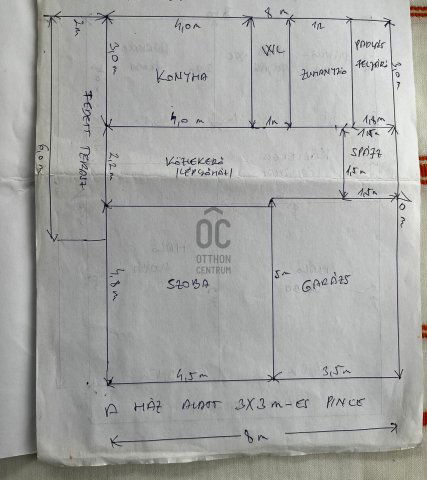 8 m
4,0 m
1m
2m
3,0 m
KONYHA
WC
ZUHANYZÓ
PADLÁS
FELJÁRÓ
3,0 m
4,0 m
1m
1,5m
FEDETT TERASZ
6,0 m
2,2 m
KÖZLEKEDŐ
SPÁJZ
1,5m
1,5m
10 m
OC
OTTHON
CENTRUM
4,8 m
SZOBA
5m
GARÁZS
4,5 m
3,5 m
A HÁZ ALATT 3X3 m-ES PINCE
8 m